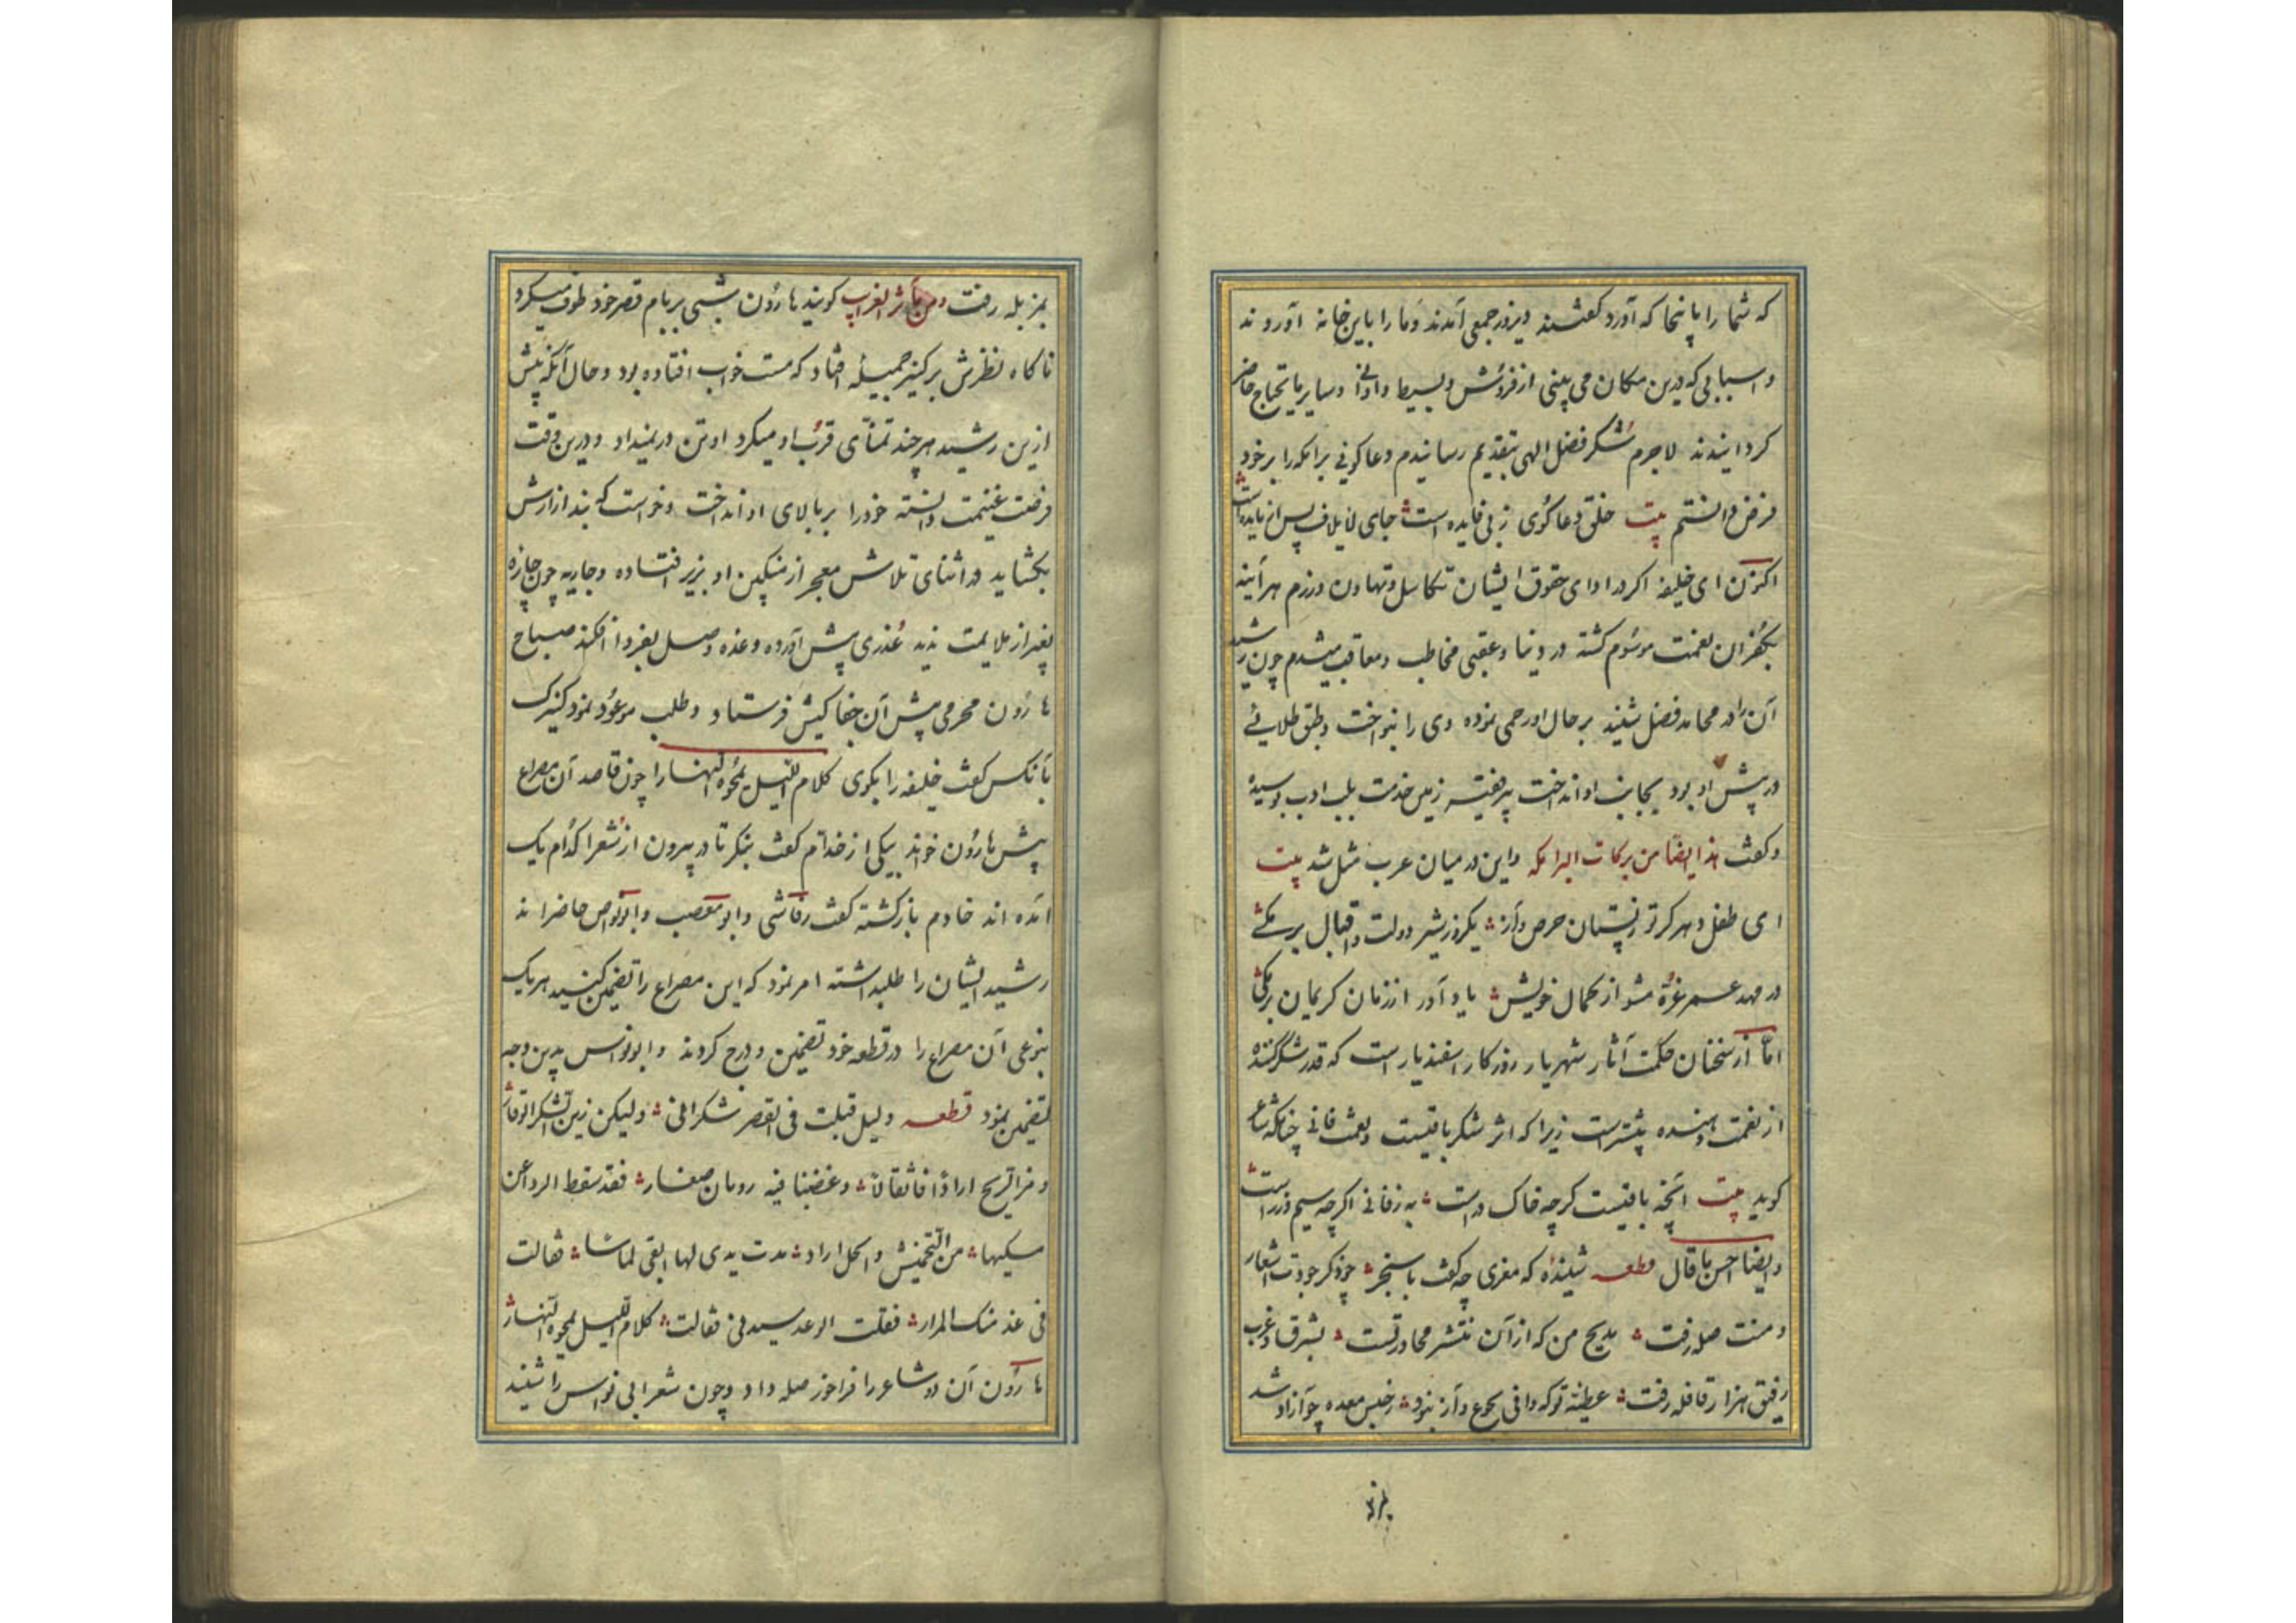 که شما را باینجا که آورد گفتند دیروز جمعی آمدند و ما را باین خانه آوردند
و اسبابی که درین مکان می بینی از فروش و بسیط و اوانی و سایر مایحتاج حاضر
کردانیدند لاجرم شکر فضل الهی بتقدیم رسانیدم و دعاکوئی برامکه را بر خود
فرض دانستم بیت خلق دعاکوی زبی فایده است جای
اکنون ای خلیفه اکر در ادای حقوق ایشان تکاسل و تهاون ورزم هر آینه
بکفران نعمت موسوم کشته در دنیا و عقبی مخاطب و معاقب میشدم چون رشید
آن زاد محامد فضل شنید بر حال او رحمی نموده وی را بنواخت و طبق طلائی
در پیش او بود بجانب او انداخت زمین خدمت بلب ادب بوسیده
و کفت هذا ایضا من برکات البرامکه و این در میان عرب مثل شد بیت
ای طفل دهر کر تو ز پستان حرص و آز یکروز شیر دولت و اقبال برمکی
در مهد عمر غره مشو از کمال خویش یاد آور از زمان کریمان برمکی
اما از سخنان حکمت آثار شهریار روزکار اسفندیار است که قدر شکر کننده
از نعمت دهنده بیشتر است زیرا که اثر شکر باقیست و نعمت فانی چنانکه شاعر
کوید بیت آنچه باقیست کرچه خاک در است به ز فانی اکر چه سیم و زر است
و ایضا احسن ما قال قطعه شنیده که معزی چه کفت با سنجر چو ذکر جودت اشعار
و منت صله رفت مدیح من که از آن منتشر محاورتست بشرق و غرب
رفیق هزار قافله رفت عطیه تو که وافی بجوع و آز نبود ز حبس معده چو آزاد شد
بمزبله
بمزبله رفت و من مآثر الغرایب کویند هارون شبی بر بام قصر خود طوف میکرد
ناکاه نظرش بر کنیز جمیله افتاد که مست خواب افتاده بود و حال آنکه پیش
ازین رشید هر چند تمنای قرب او میکرد او تن در نمیداد و درین وقت
فرصت غنیمت دانسته خود را بر بالای او انداخت و خواست که بند ازارش
بکشاید در اثنای تلاش معجر از منکبین او بزیر افتاده و جاریه چون چاره
بغیر از ملایمت ندید عذری پیش آورده وعده وصل بفردا افکند صباح
هارون محرمی پیش آن جفاکیش فرستاد و طلب موعود نمود کنیزک
بآنکس کفت خلیفه را بکوی کلام اللیل یمحوه النهار را چون قاصد آن مصراع
پیش هارون خواند بیکی از خدام کفت بنکر تا در بیرون از شعرا کدام یک
آمده اند خادم بازکشته کفت رقاشی و ابو مصعب و ابونواس حاضراند
رشید ایشان را طلبداشته امر نمود که این مصراع را تضمین کنید هر یک
بنوعی آن مصراع را در قطعه خود تضمین و درج کردند و ابونواس بدین وجه
تضمین نمود قطعه ولیل قبلت فی القصر سکرا ولیکن زین السکر الوقار
و هز الریح اردافا ثقالا و غصنا فیه رمان صغار فقد سقط الردا عن
منکبها من التخمیش و انحل ازار مدت یدی لها فقالت
فی غد منک المزار فقلت الوعد سیدتی فقالت کلام اللیل یمحوه النهار
هارون آن دو شاعر را فراخور صله داد و چون شعر ابی نواس را شنید